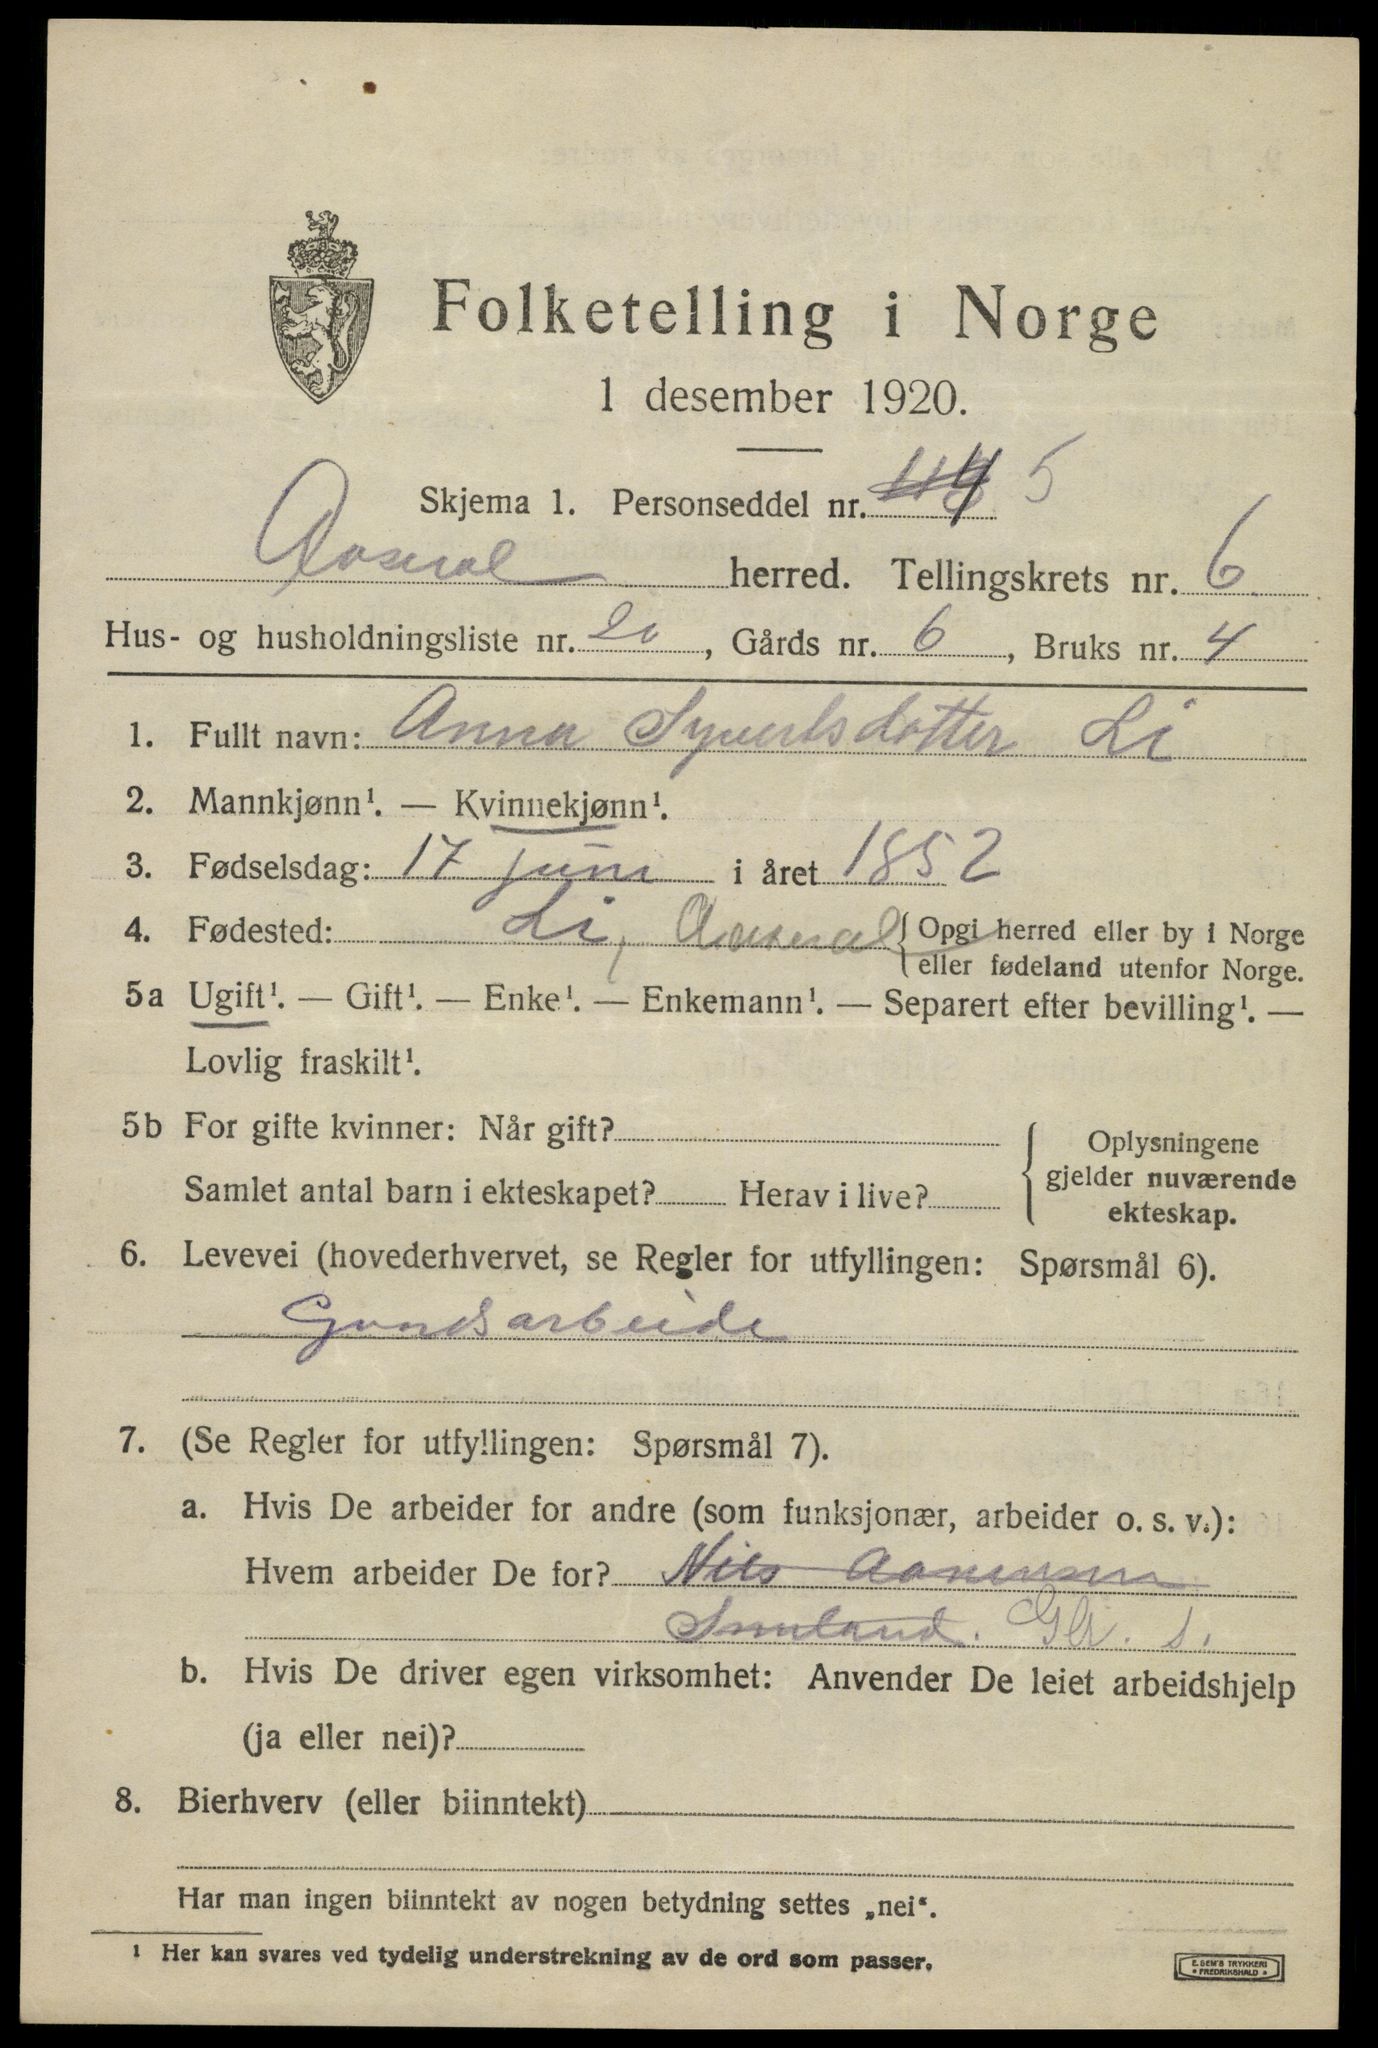 Folketelling i Norge
1 desember 1920.
Skjema 1. Personseddel nr. 5
Aaseral herred. Tellingskrets nr. 6
Hus- og husholdningsliste nr. 20, Gårds nr. 6, Bruks nr. 4
1. Fullt navn: Anna Syvertsdotter Li
2. Mannkjønn¹. — Kvinnekjønn¹.
3. Fødselsdag: 17 juni i året 1852
4. Fødested: Li, Aaseral { Opgi herred eller by i Norge
eller fødeland utenfor Norge.
5a Ugift¹. — Gift¹. — Enke¹. — Enkemann¹. — Separert efter bevilling¹. —
Lovlig fraskilt¹.
5b For gifte kvinner: Når gift?
Samlet antal barn i ekteskapet? Herav i live?
{ Oplysningene
gjelder nuværende
ekteskap.
6. Levevei (hovederhvervet, se Regler for utfyllingen: Spørsmål 6).
Gaardsarbeide
7. (Se Regler for utfyllingen: Spørsmål 7).
a. Hvis De arbeider for andre (som funksjonær, arbeider o. s. v.):
Hvem arbeider De for? Nils Aanensen
. Gbr. s.
b. Hvis De driver egen virksomhet: Anvender De leiet arbeidshjelp
(ja eller nei)?
8. Bierhverv (eller biinntekt)
Har man ingen biinntekt av nogen betydning settes „nei“.
¹ Her kan svares ved tydelig understrekning av de ord som passer.
E. SEM'S TRYKKERI
• FREDRIKSHALD •